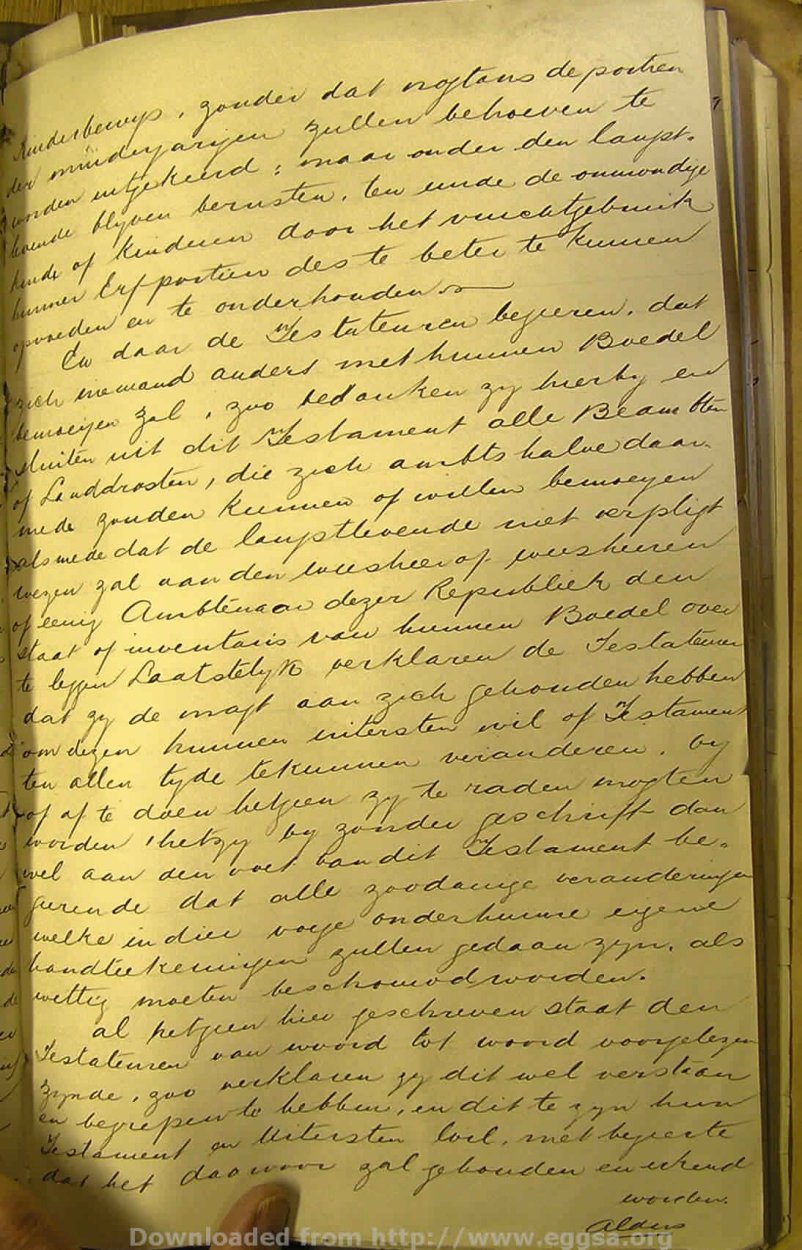 Kinderbewys, zonder dat nogtans de portien
der minderjarigen zullen behoeven te
worden uitgekeerd; maar onder den langst-
levende blyven berusten, ten einde de onmondige
kinds of kinderen door het vruchtgebruik
hunner Erfportien des te beter te kunnen
opvoeden en te onderhouden
En daar de Testateuren begeeren, dat
zich niemand anders met hunnen Boedel
bemoeyen zal, zoo bedanken zy hierby en
sluiten uit dit Testament alle Beambten
of Landdrosten, die zich ambtshalve daar
mede zouden kunnen of willen bemoeyen
alsmede dat de langstlevende niet verpligt
wezen zal aan den weesheer of weesheeren
of eenig Ambtenaar dezer Republiek den
staat of inventaris van hunnen Boedel over
te leggen Laatstelyk verklaren de Testateuren
dat zy de magt aan zich gehouden hebben
om dezen hunnen uitersten wil of Testament
ten allen tyde te kunnen veranderen, by
of af te doen hetgeen zy te raden mogten
worden 'hetzy by zonder geschrift dan
wel aan den voet van dit Testament be-
geerende dat alle zoodanige veranderingen
welke in dier voege onder hunne eigene
handteekeningen zullen gedaan zyn, als
wettig moeten beschouwd worden.
al hetgeen hier geschreven staat den
Testateuren van woord tot woord voorgelezen
zynde, zoo verklaren zy dit wel verstaan
en begrepen te hebben, en dit te zyn hun
Testament en Uitersten wil, met begeerte
dat het daarvoor zal gehouden en erkend
worden.
Aldus
Downloaded from http://www.eggsa.org